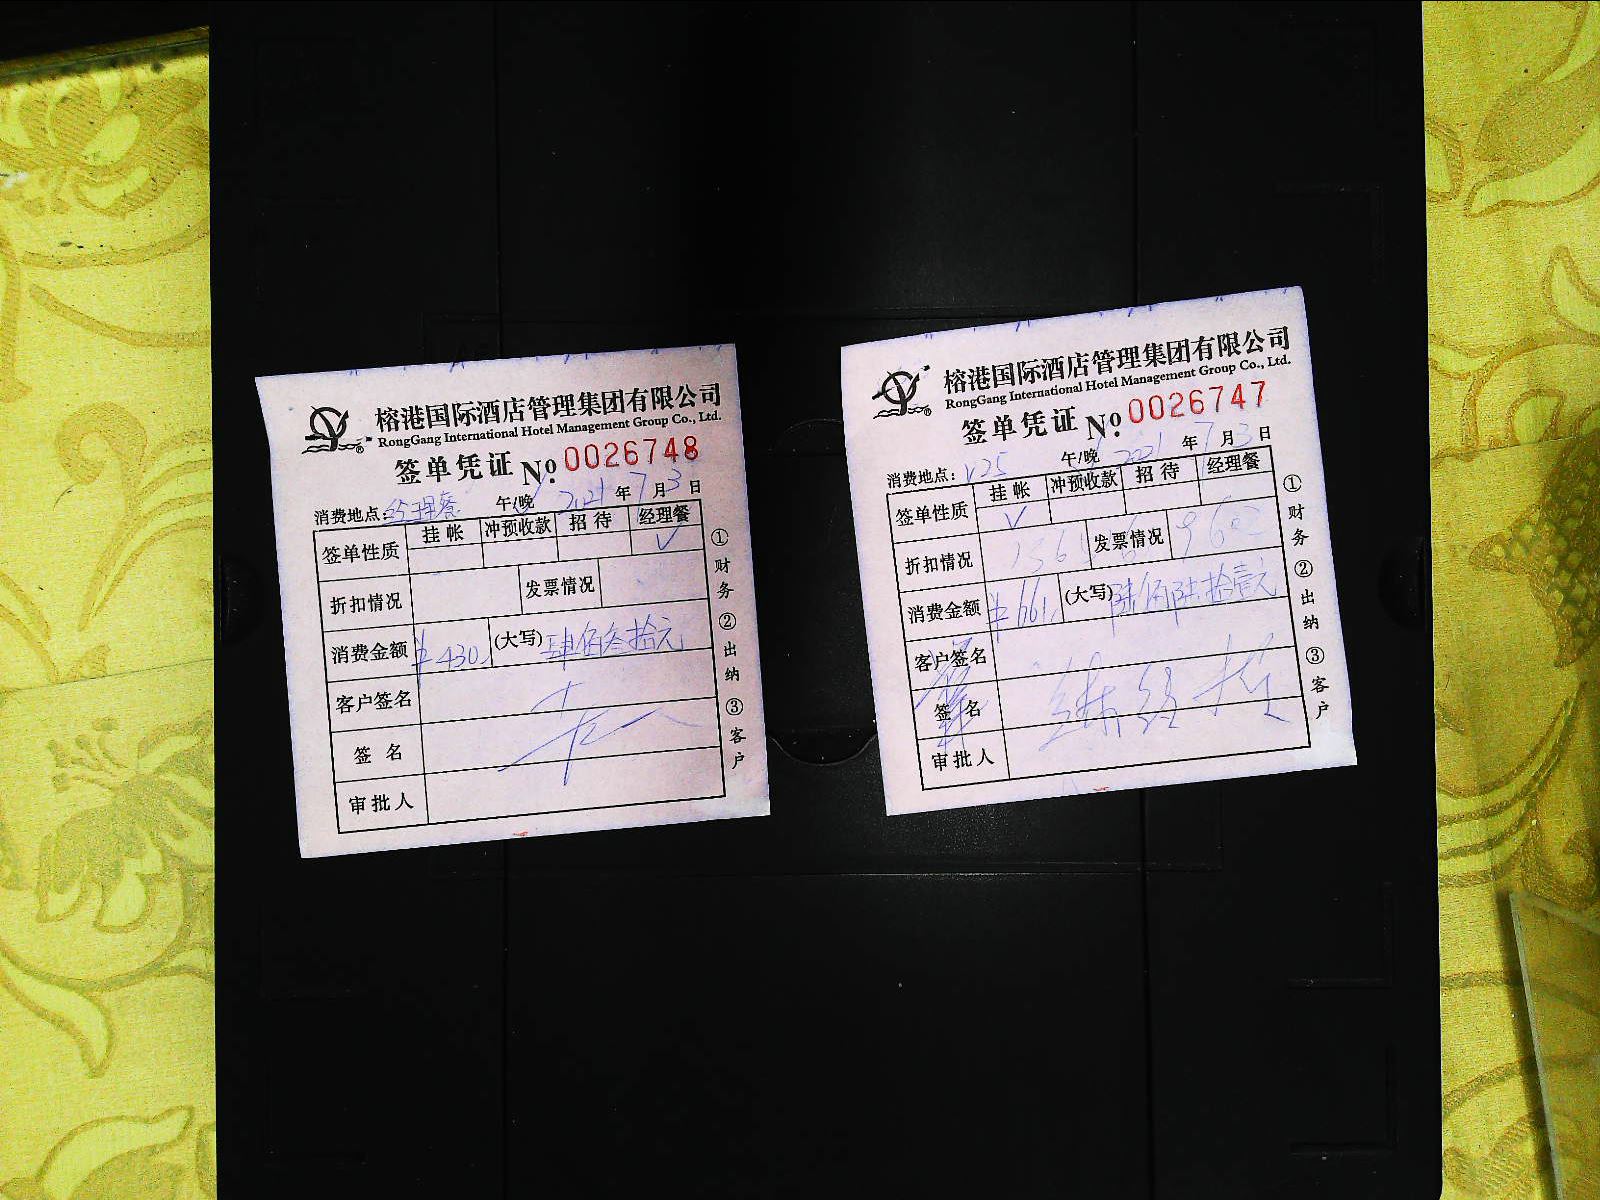 榕港国际酒店管理集团有限公司
RongGang International Hotel Management Group Co., Ltd.
签单凭证 №: 0026748
消费地点: 经理餐 午/晚 2021 年 7 月 3 日
签单性质 挂帐 冲预收款 招待 经理餐
✓
折扣情况 发票情况
消费金额 ¥430. (大写) 肆佰叁拾元
客户签名
签名
审批人
①财务 ②出纳 ③客户
榕港国际酒店管理集团有限公司
RongGang International Hotel Management Group Co., Ltd.
签单凭证 №: 0026747
消费地点: V25 午/晚 2021 年 7 月 3 日
签单性质 挂帐 冲预收款 招待 经理餐
✓
折扣情况 发票情况
消费金额 ¥661. (大写) 陆佰陆拾壹元
客户签名
签名
审批人
①财务 ②出纳 ③客户